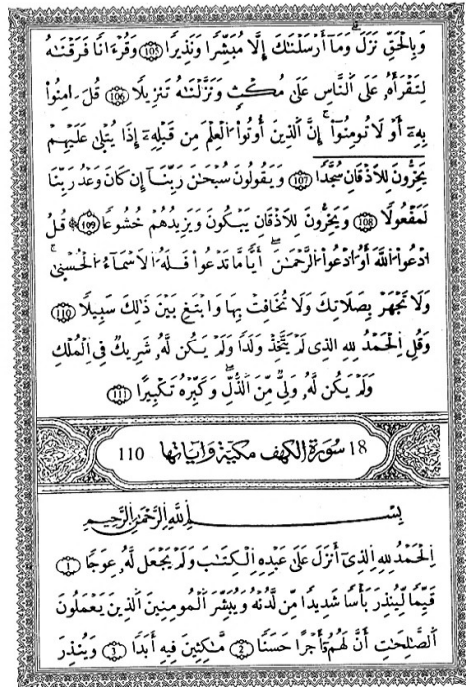 وَبِالْحَقِّ نَزَلَ وَمَا أَرْسَلْنَٰكَ إِلَّا مُبَشِّرًا وَنَذِيرًا 105 وَقُرْءَانًا فَرَقْنَٰهُ
لِتَقْرَأَهُۥ عَلَى النَّاسِ عَلَىٰ مُكْثٍ وَنَزَّلْنَٰهُ تَنزِيلًا 106 قُلَ ـامِنُوا
بِهِۦ أَوْ لَا تُومِنُوا إِنَّ الَّذِينَ أُوتُوا الْعِلْمَ مِن قَبْلِهِۦ إِذَا يُتْلَىٰ عَلَيْهِمْ
يَخِرُّونَ لِلْأَذْقَانِ سُجَّدًا 107 وَيَقُولُونَ سُبْحَٰنَ رَبِّنَا إِن كَانَ وَعْدُ رَبِّنَا
لَمَفْعُولًا 108 وَيَخِرُّونَ لِلْأَذْقَانِ يَبْكُونَ وَيَزِيدُهُمْ خُشُوعًا 109 قُلُ
ادْعُوا اللَّهَ أَوُ ادْعُوا الرَّحْمَٰنَ أَيًّا مَّا تَدْعُوا فَلَهُ الَاسْمَاءُ الْحُسْنَىٰ
وَلَا تَجْهَرْ بِصَلَاتِكَ وَلَا تُخَافِتْ بِهَا وَابْتَغِ بَيْنَ ذَٰلِكَ سَبِيلًا 110
وَقُلِ الْحَمْدُ لِلهِ الذِي لَمْ يَتَّخِذْ وَلَدًا وَلَمْ يَكُن لَّهُ شَرِيكٌ فِي الْمُلْكِ
وَلَمْ يَكُن لَّهُۥ وَلِيٌّ مِّنَ الذُّلِّ وَكَبِّرْهُ تَكْبِيرًا 111
18 سورة الكهف مكية وءاياتها 110
بِسْمِ اللَّهِ الرَّحْمَٰنِ الرَّحِيمِ
الْحَمْدُ لِلهِ الذِي أَنزَلَ عَلَىٰ عَبْدِهِ الْكِتَٰبَ وَلَمْ يَجْعَل لَّهُۥ عِوَجًا 1
قَيِّمًا لِّيُنذِرَ بَأْسًا شَدِيدًا مِّن لَّدُنْهُ وَيُبَشِّرَ الْمُومِنِينَ الذِينَ يَعْمَلُونَ
الصَّٰلِحَٰتِ أَنَّ لَهُمُ أَجْرًا حَسَنًا 2 مَّٰكِثِينَ فِيهِ أَبَدًا 3 وَيُنذِرَ